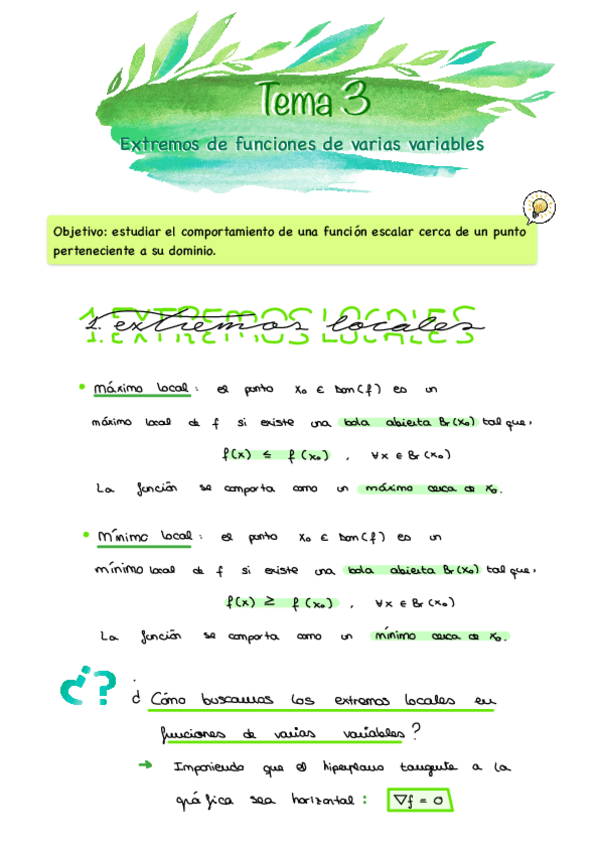 Tema 3
Extremos de funciones de varias variables
Objetivo: estudiar el comportamiento de una función escalar cerca de un punto
perteneciente a su dominio.
1. EXTREMOS LOCALES
1. extremos locales
• Máximo local: el punto x₀ ∈ Dom(f) es un
máximo local de f si existe una bola abierta Br(x₀) tal que,
f(x) ≤ f(x₀), ∀x ∈ Br(x₀)
La función se comporta como un máximo cerca de x₀.
• Mínimo local: el punto x₀ ∈ Dom(f) es un
mínimo local de f si existe una bola abierta Br(x₀) tal que,
f(x) ≥ f(x₀), ∀x ∈ Br(x₀)
La función se comporta como un mínimo cerca de x₀.
¿?
¿Cómo buscamos los extremos locales en
funciones de varias variables?
→ Imponiendo que el hiperplano tangente a la
gráfica sea horizontal: ∇f = 0